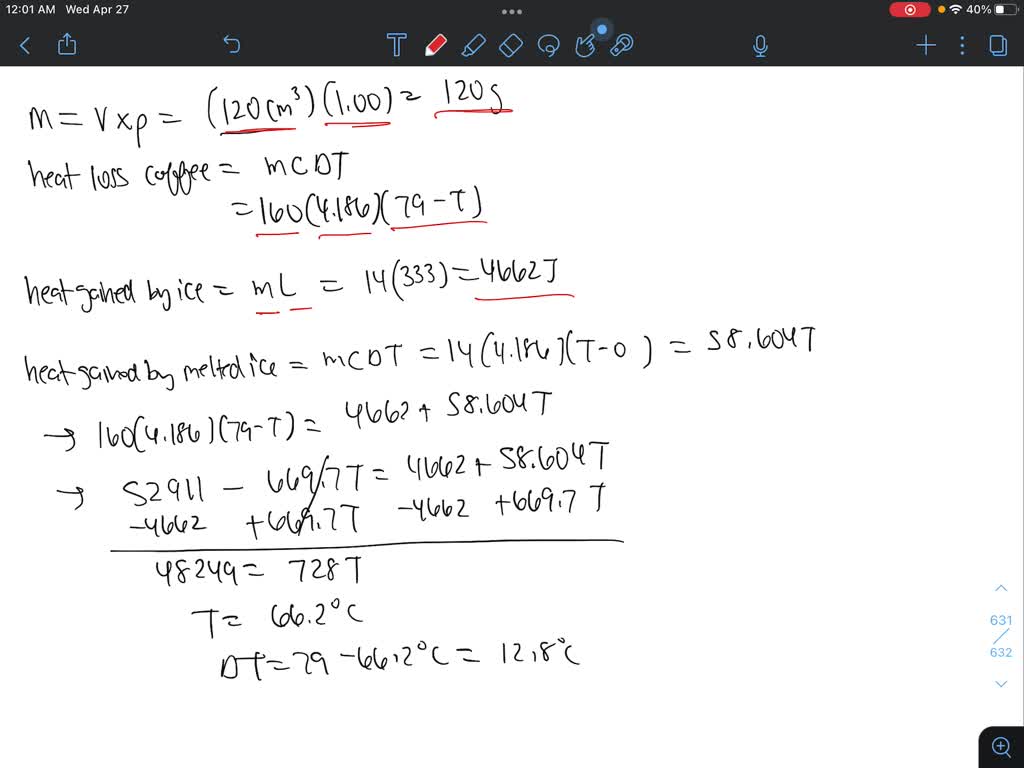 12:01 AM Wed Apr 27
40%
m = V x ρ = (120 cm³)(1.00) = 120g
heat loss coffee = mCDT
= 160(4.186)(79-T)
heat gained by ice = mL = 14(333) = 4662J
heat gained by melted ice = mCDT = 14(4.186)(T-0) = 58.604T
→ 160(4.186)(79-T) = 4662 + 58.604T
→ 52911 - 669.7T = 4662 + 58.604T
-4662 +669.7T -4662 +669.7T
48249 = 728T
T = 66.2°C
DT = 79 - 66.2°C = 12.8°C
631
632